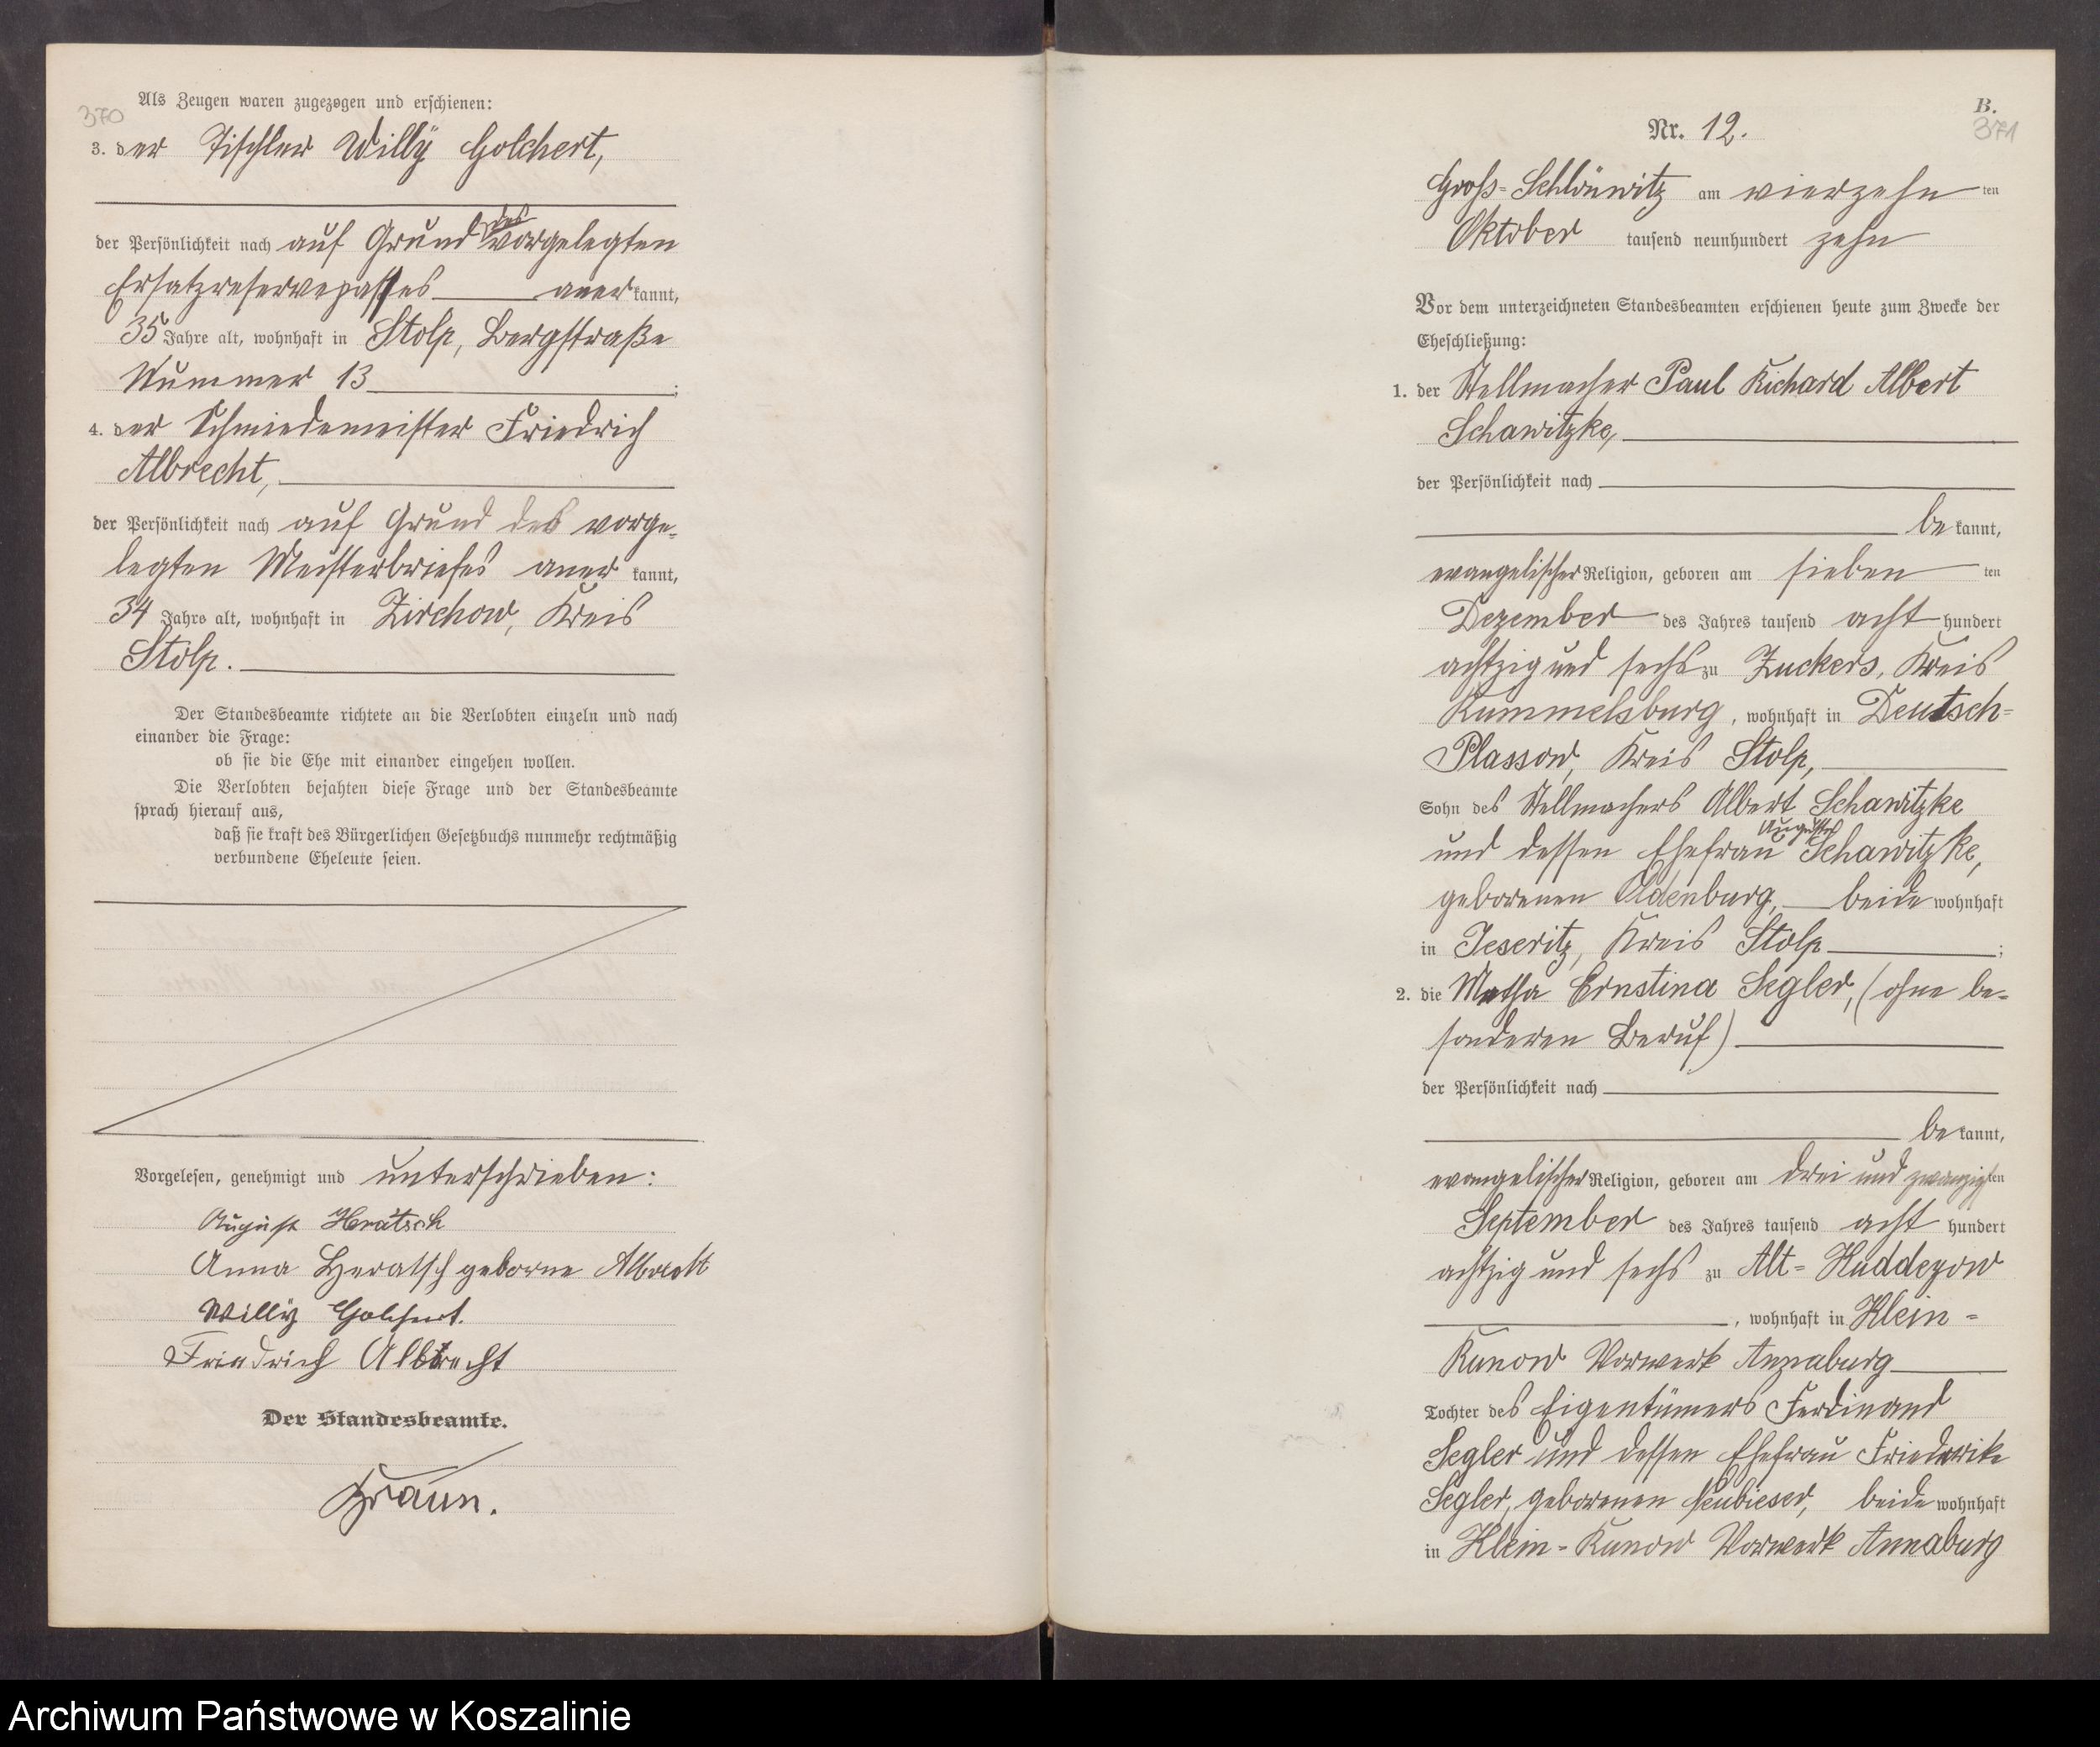 370
Als Zeugen waren zugezogen und erschienen:
3. der Tischler Willÿ Golchert,
der Persönlichkeit nach auf Grund des vorgelegten
Ersatzreservepasses anerkannt,
35 Jahre alt, wohnhaft in Stolp, Bergstraße
Nummer 13;
4. der Schmiedemeister Friedrich
Albrecht,
der Persönlichkeit nach auf Grund des vorge-
legten Meisterbriefes aner kannt,
34 Jahre alt, wohnhaft in Zirchow, Kreis
Stolp.
Der Standesbeamte richtete an die Verlobten einzeln und nach
einander die Frage:
ob sie die Ehe mit einander eingehen wollen.
Die Verlobten bejahten diese Frage und der Standesbeamte
sprach hierauf aus,
daß sie kraft des Bürgerlichen Gesetzbuchs nunmehr rechtmäßig
verbundene Eheleute seien.
Vorgelesen, genehmigt und unterschrieben:
August Heratsch
Anna Heratsch geborne Albrecht
Willÿ Golchert.
Friedrich Albrecht
Der Standesbeamte.
Braun.
B.
371
Nr. 12.
Gross-Schlönwitz am vierzehn ten
Oktober tausend neunhundert zehn
Vor dem unterzeichneten Standesbeamten erschienen heute zum Zwecke der
Eheschließung:
1. der Stellmacher Paul Richard Albert
Schawitzke,
der Persönlichkeit nach
be kannt,
evangelischer Religion, geboren am sieben ten
Dezember des Jahres tausend acht hundert
achtzig und sechs zu Zuckers, Kreis
Rummelsburg, wohnhaft in Deutsch-
Plassow, Kreis Stolp,
Sohn des Stellmachers Albert Schawitzke
und dessen Ehefrau Auguste Schawitzke,
geborenen Oldenburg, beide wohnhaft
in Jeseritz, Kreis Stolp;
2. die Ernstina Segler, (ohne be-
sonderen Beruf)
der Persönlichkeit nach
be kannt,
evangelischer Religion, geboren am drei und zwanzigsten
September des Jahres tausend acht hundert
achtzig und sechs zu Alt-Huddezow
, wohnhaft in Klein-
Runow Vorwerk Annaburg
Tochter des Eigentümers Ferdinand
Segler und dessen Ehefrau Friederike
Segler, geborenen beide wohnhaft
in Klein-Runow Vorwerk Annaburg
Archiwum Państwowe w Koszalinie